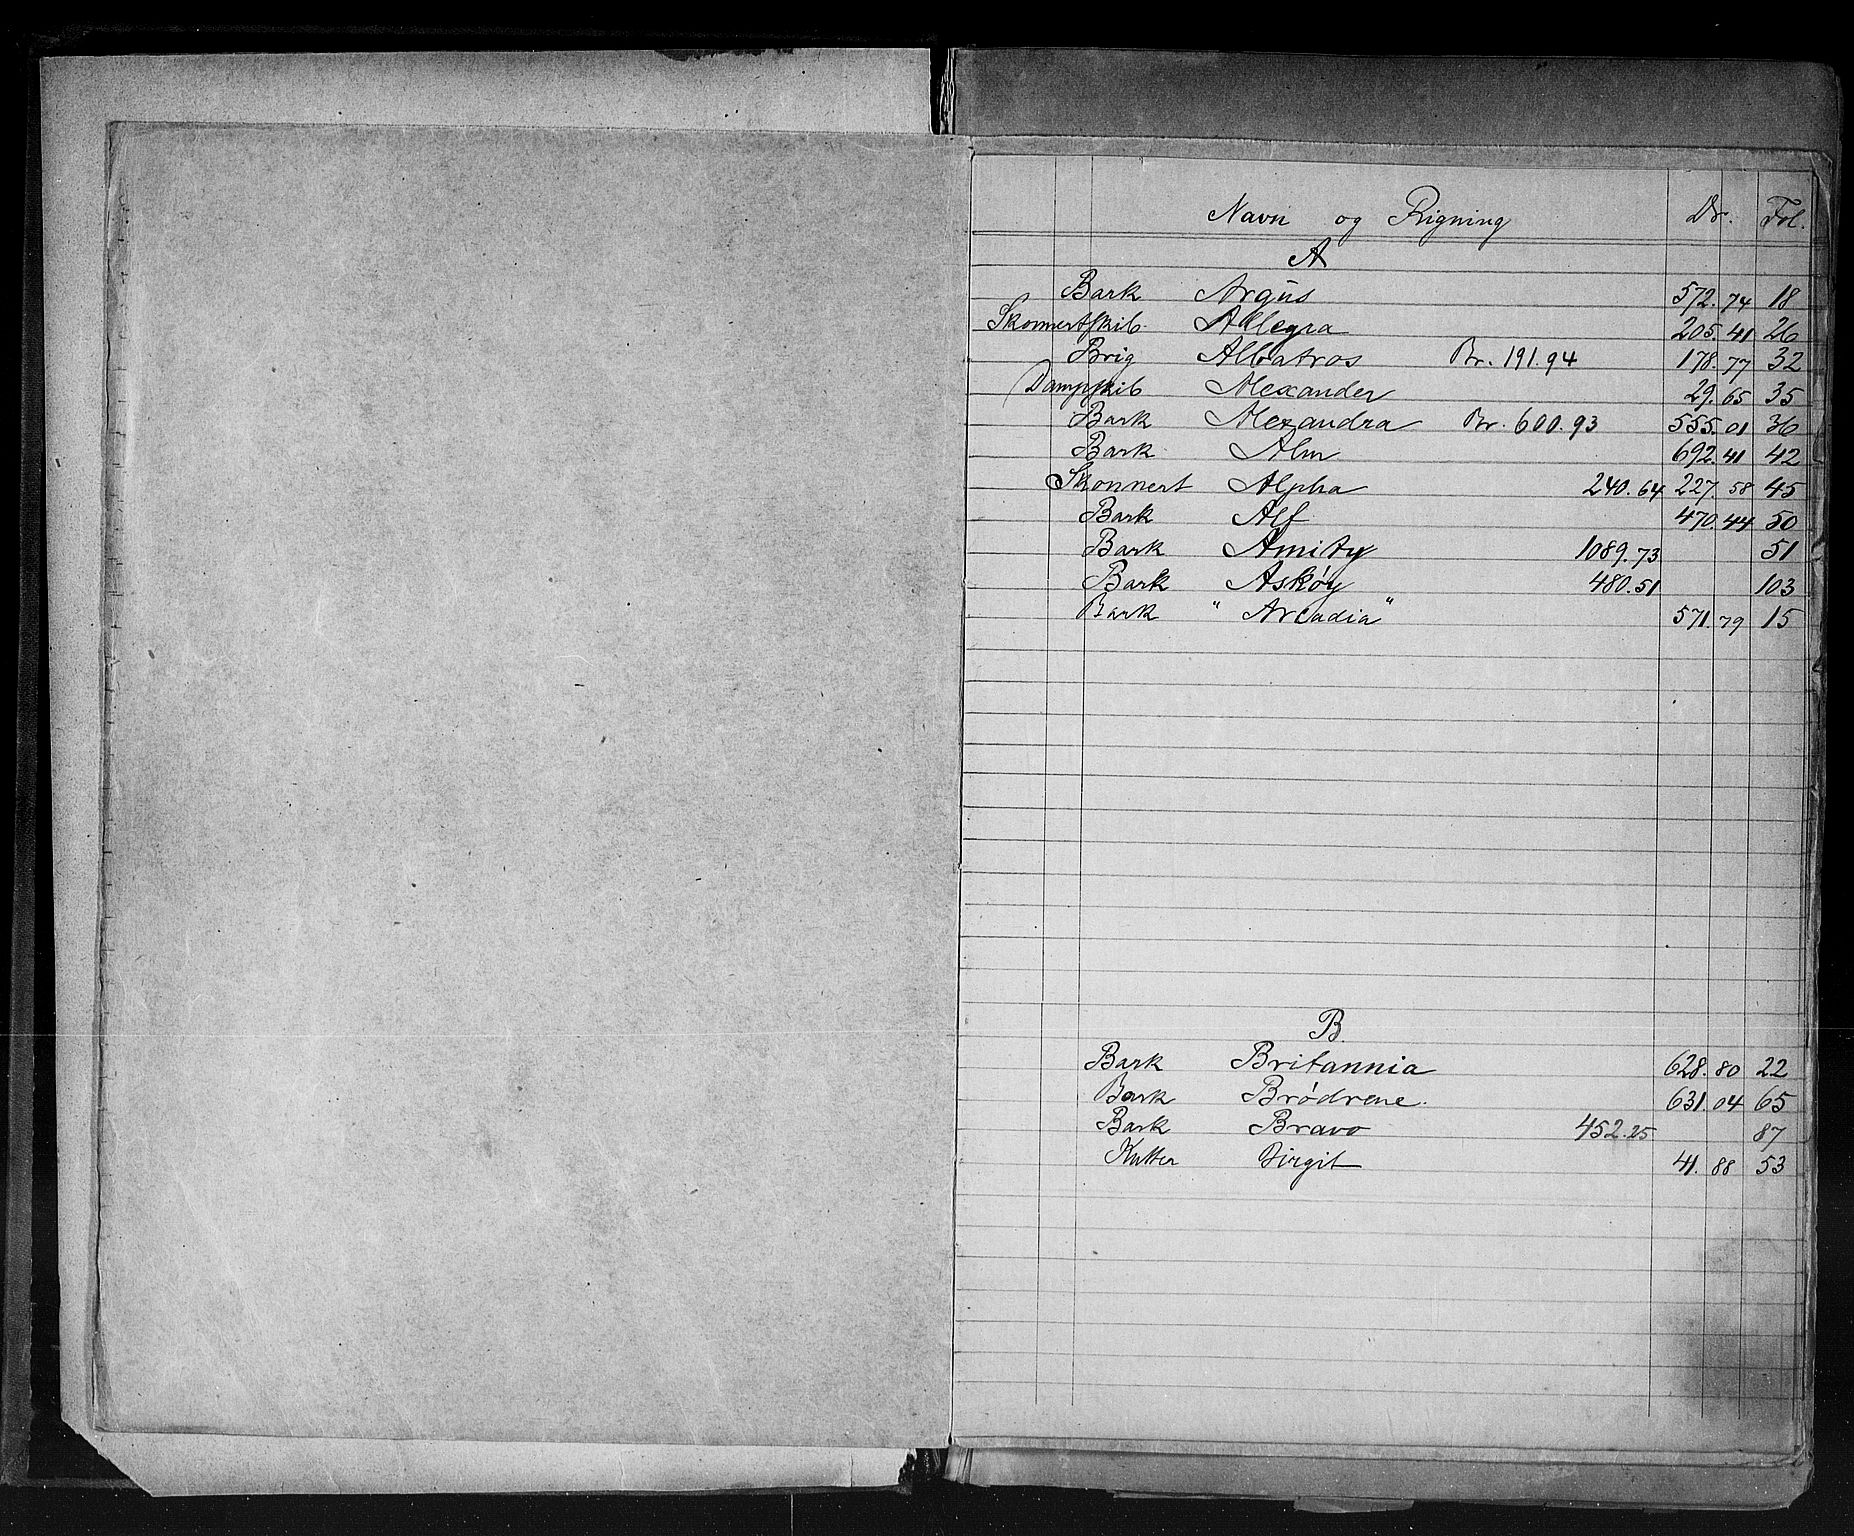 Navn og Rigning Dr. Fol.
A
Bark Argus 572.74 18
Skonnertskib. Allegra 205.41 26
Brig Albatros Br. 191.94 178.77 32
Dampskib Alexander 29.65 35
Bark Alexandra Br. 600.93 555.01 36
Bark Alm 692.41 42
Skonnert Alpha 240.64 227.58 45
Bark Alf 470.44 50
Bark Amity 1089.73 51
Bark Askøy 480.51 103
Bark "Arcadia" 571.79 15
B.
Bark Britannia 628.80 22
Bark Brödrene. 631.04 65
Bark Bravo 452.25 87
Kutter Birgit 41.88 53